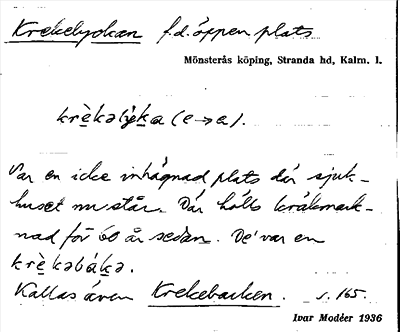 Krekelyckan f.d. öppen plats
Mönsterås köping, Stranda hd, Kalm. l.
krè̱kəlýk̲a (e→a).
Var en icke inhägnad plats där sjuk-
huset nu står. Där hölls kräkmark-
nad för 60 år sedan. De' var en
krè̱kəbák̲ə.
Kallas även Krekebacken. s. 165.
Ivar Modéer 1936